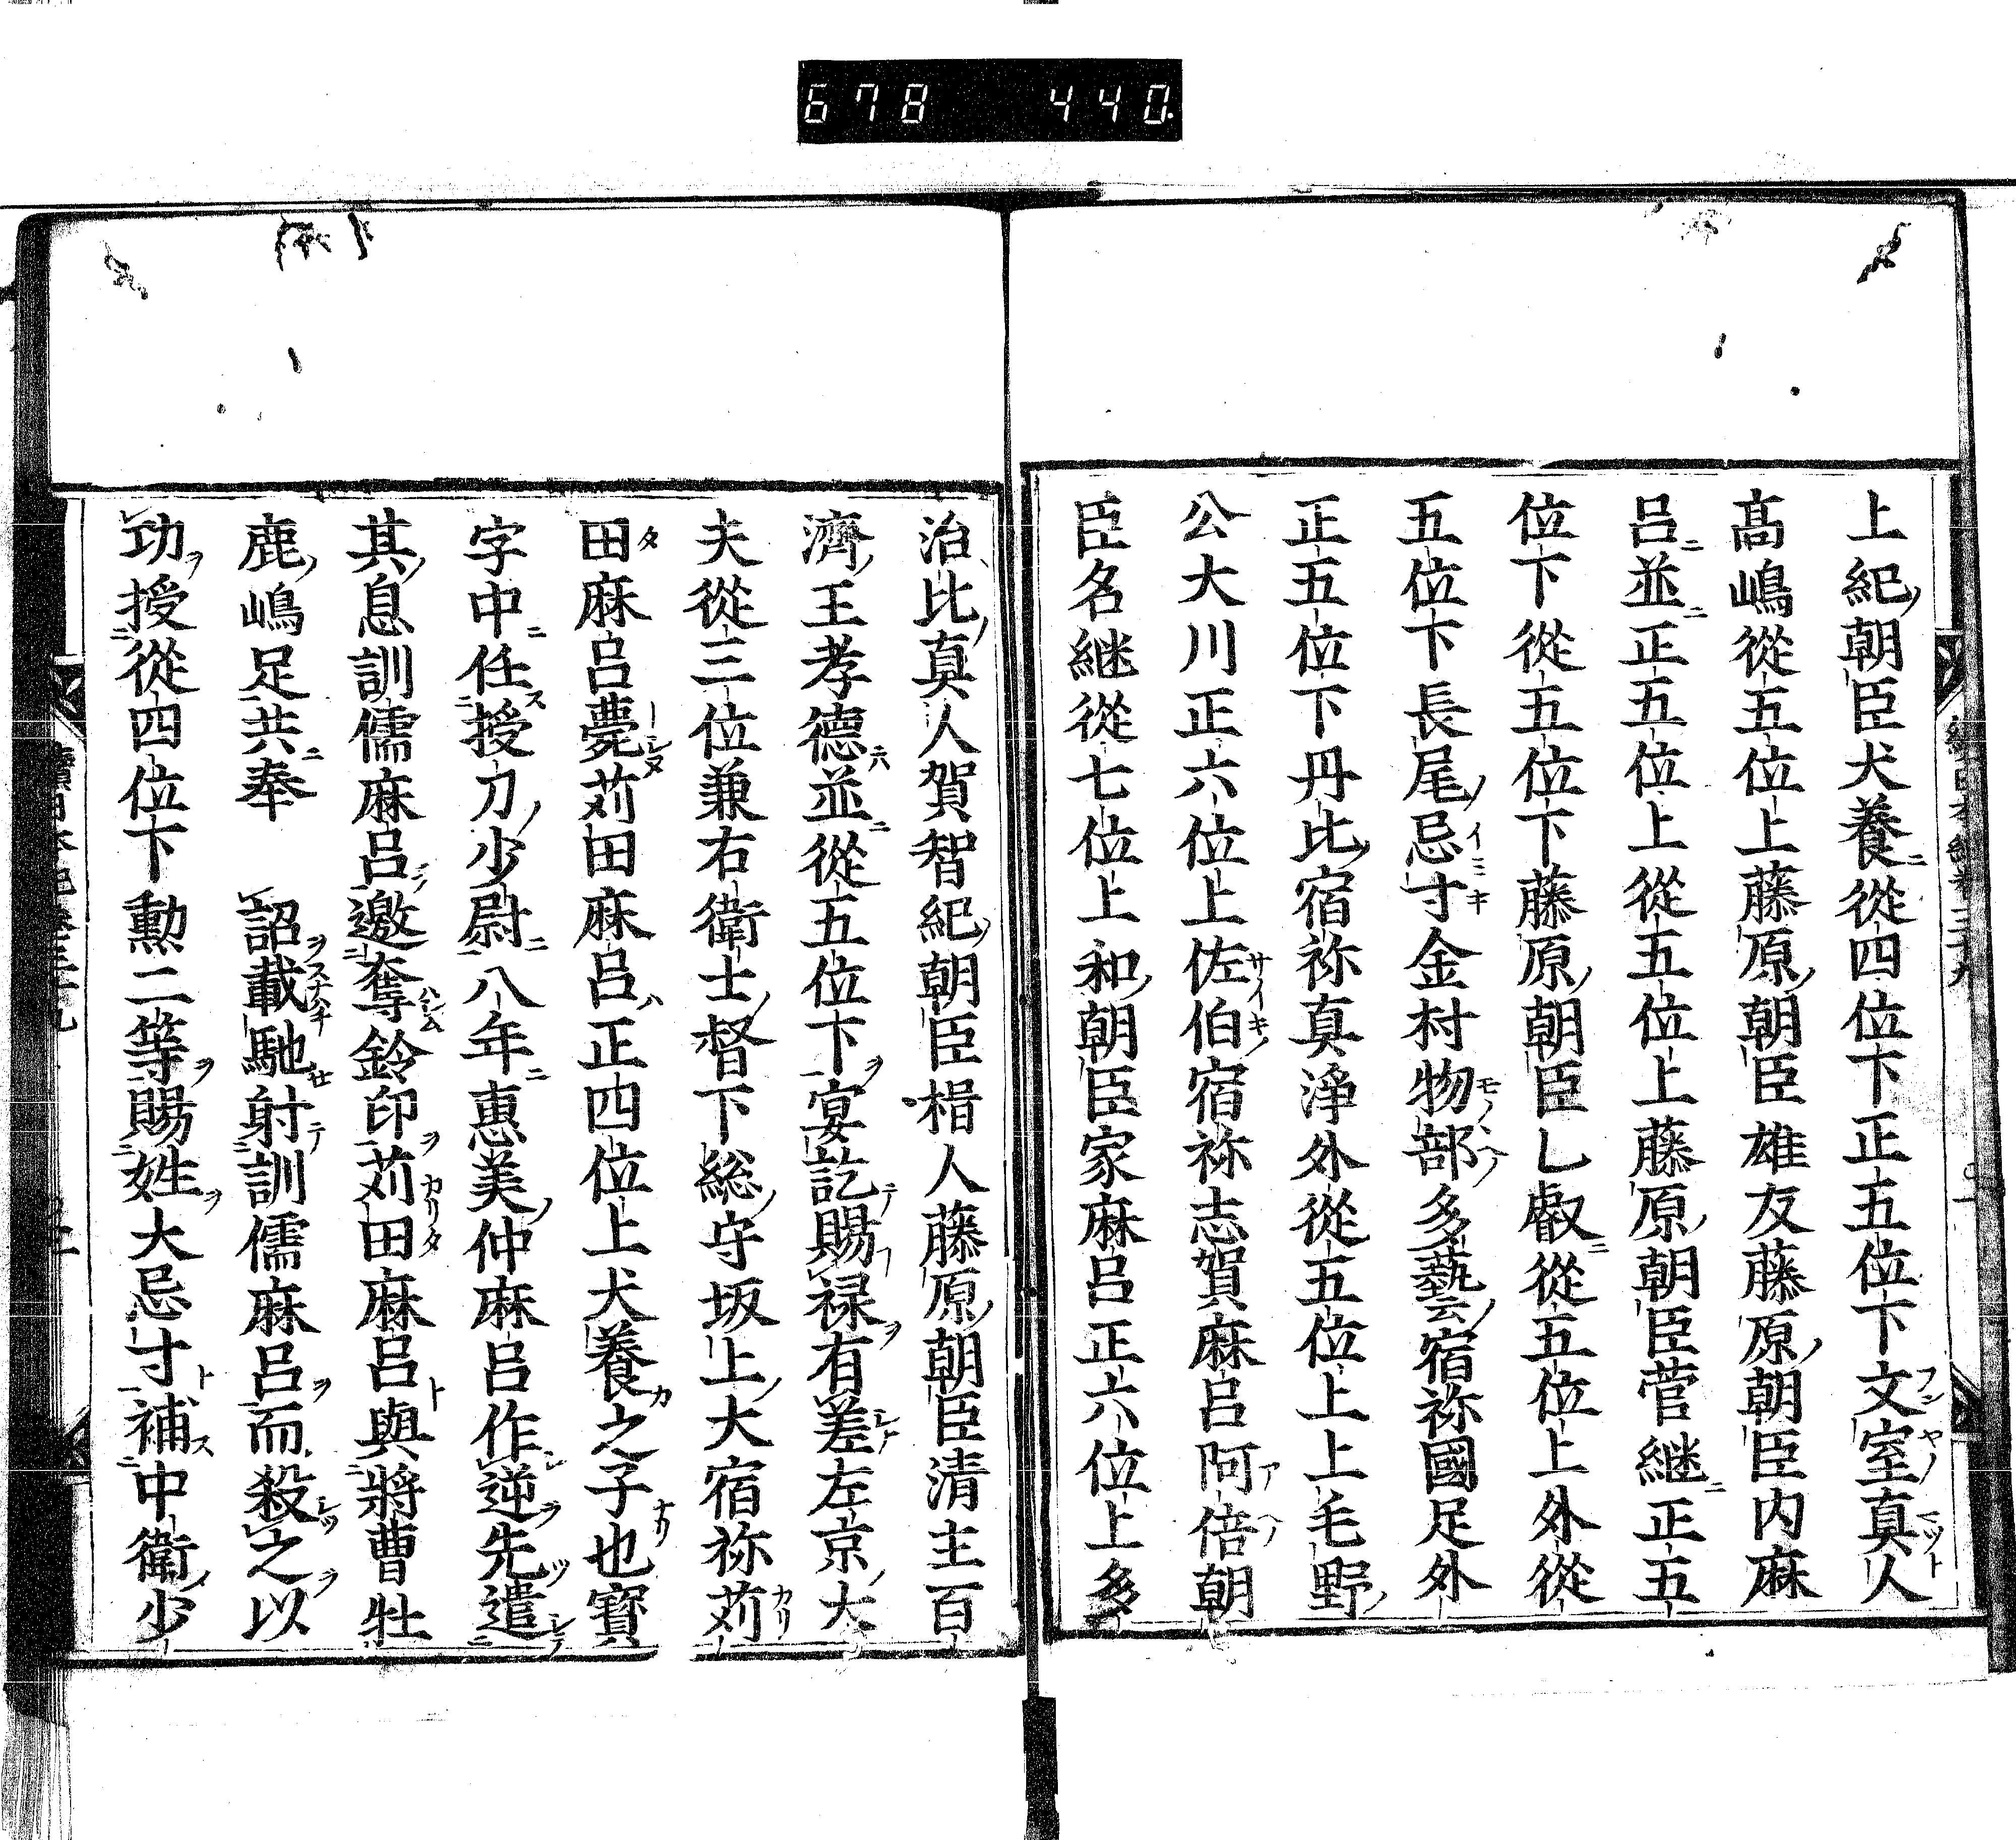 678 440
上紀朝臣犬養從四位下正五位下文室真人
髙嶋從五位上藤原朝臣雄友藤原朝臣内麻
吕並正五位上從五位上藤原朝臣菅継正五
位下從五位下藤原朝臣乚叡從五位上外從
五位下長尾忌寸金村物部多藝宿祢國足外
正五位下丹比宿祢真淨外從五位上上毛野
公大川正六位上佐伯宿祢志賀麻吕阿倍朝
臣名継從七位上和朝臣家麻吕正六位上多
治比真人賀智紀朝臣楫人藤原朝臣清主百
濟王孝德並從五位下宴訖賜禄有差左京大
夫從三位兼右衛士督下総守坂上大宿祢苅
田麻吕薨苅田麻吕正四位上犬養之子也寳
字中任授刀少尉八年惠美仲麻吕作逆先遣
其息訓儒麻吕邀奪鈴印苅田麻吕與將曹牡
鹿嶋足共奉 詔載馳射訓儒麻吕而殺之以
功授從四位下勲二等賜姓大忌寸補中衛少